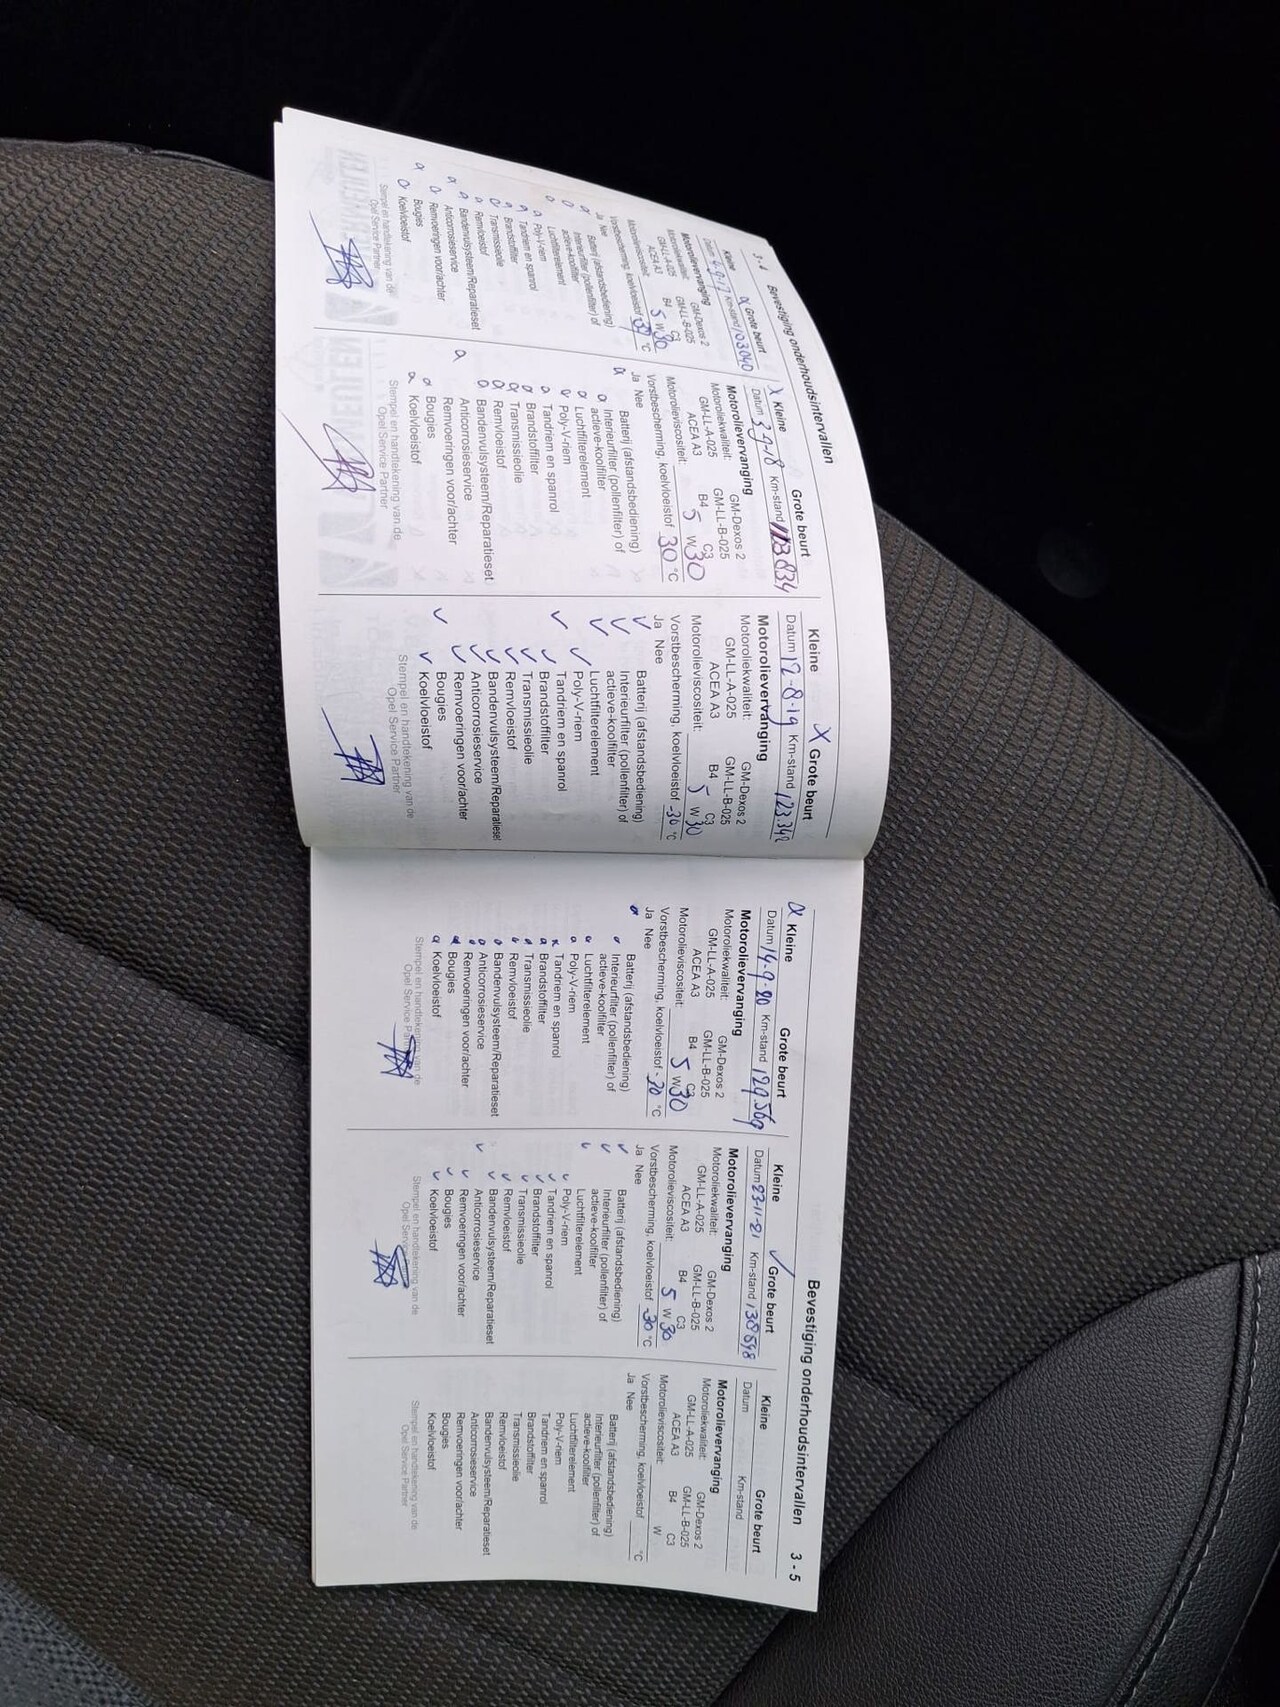 3 - 4 Bevestiging onderhoudsintervallen
Kleine Grote beurt
Km-stand 103040
Motorolievervanging
Motoroliekwaliteit: GM-Dexos 2
GM-LL-A-025 GM-LL-B-025
ACEA A3 B4 C3
Motorolieviscositeit: 5 W 30
Vorstbescherming, koelvloeistof 30 °C
Ja Nee
Batterij (afstandsbediening)
Interieurfilter (pollenfilter) of
actieve-koolfilter
Luchtfilterelement
Poly-V-riem
Tandriem en spanrol
Brandstoffilter
Transmissieolie
Remvloeistof
Bandenvulsysteem/Reparatieset
Anticorrosieservice
Remvoeringen voor/achter
Bougies
Koelvloeistof
Stempel en handtekening van de
Opel Service Partner
X Kleine Grote beurt
Datum 3-9-18 Km-stand 113834
Motorolievervanging
Motoroliekwaliteit: GM-Dexos 2
GM-LL-A-025 GM-LL-B-025
ACEA A3 B4 C3
Motorolieviscositeit: 5 W 30
Vorstbescherming, koelvloeistof 30 °C
Ja Nee
Batterij (afstandsbediening)
Interieurfilter (pollenfilter) of
actieve-koolfilter
Luchtfilterelement
Poly-V-riem
Tandriem en spanrol
Brandstoffilter
Transmissieolie
Remvloeistof
Bandenvulsysteem/Reparatieset
Anticorrosieservice
Remvoeringen voor/achter
Bougies
Koelvloeistof
Stempel en handtekening van de
Opel Service Partner
Kleine X Grote beurt
Datum 12-8-19 Km-stand 123.342
Motorolievervanging
Motoroliekwaliteit: GM-Dexos 2
GM-LL-A-025 GM-LL-B-025
ACEA A3 B4 C3
Motorolieviscositeit: 5 W 30
Vorstbescherming, koelvloeistof -30 °C
Ja Nee
Batterij (afstandsbediening)
Interieurfilter (pollenfilter) of
actieve-koolfilter
Luchtfilterelement
Poly-V-riem
Tandriem en spanrol
Brandstoffilter
Transmissieolie
Remvloeistof
Bandenvulsysteem/Reparatieset
Anticorrosieservice
Remvoeringen voor/achter
Bougies
Koelvloeistof
Stempel en handtekening van de
Opel Service Partner
Bevestiging onderhoudsintervallen 3 - 5
Kleine Grote beurt
Datum 14-9-20 Km-stand 129.569
Motorolievervanging
Motoroliekwaliteit: GM-Dexos 2
GM-LL-A-025 GM-LL-B-025
ACEA A3 B4 C3
Motorolieviscositeit: 5 W 30
Vorstbescherming, koelvloeistof -30 °C
Ja Nee
Batterij (afstandsbediening)
Interieurfilter (pollenfilter) of
actieve-koolfilter
Luchtfilterelement
Poly-V-riem
Tandriem en spanrol
Brandstoffilter
Transmissieolie
Remvloeistof
Bandenvulsysteem/Reparatieset
Anticorrosieservice
Remvoeringen voor/achter
Bougies
Koelvloeistof
Stempel en handtekening van de
Opel Service Partner
Kleine Grote beurt
Datum 23-11-21 Km-stand 138598
Motorolievervanging
Motoroliekwaliteit: GM-Dexos 2
GM-LL-A-025 GM-LL-B-025
ACEA A3 B4 C3
Motorolieviscositeit: 5 W 30
Vorstbescherming, koelvloeistof 30 °C
Ja Nee
Batterij (afstandsbediening)
Interieurfilter (pollenfilter) of
actieve-koolfilter
Luchtfilterelement
Poly-V-riem
Tandriem en spanrol
Brandstoffilter
Transmissieolie
Remvloeistof
Bandenvulsysteem/Reparatieset
Anticorrosieservice
Remvoeringen voor/achter
Bougies
Koelvloeistof
Stempel en handtekening van de
Opel Service
Kleine Grote beurt
Datum Km-stand
Motorolievervanging
Motoroliekwaliteit: GM-Dexos 2
GM-LL-A-025 GM-LL-B-025
ACEA A3 B4 C3
Motorolieviscositeit: W
Vorstbescherming, koelvloeistof °C
Ja Nee
Batterij (afstandsbediening)
Interieurfilter (pollenfilter) of
actieve-koolfilter
Luchtfilterelement
Poly-V-riem
Tandriem en spanrol
Brandstoffilter
Transmissieolie
Remvloeistof
Bandenvulsysteem/Reparatieset
Anticorrosieservice
Remvoeringen voor/achter
Bougies
Koelvloeistof
Stempel en handtekening van de
Opel Service Partner